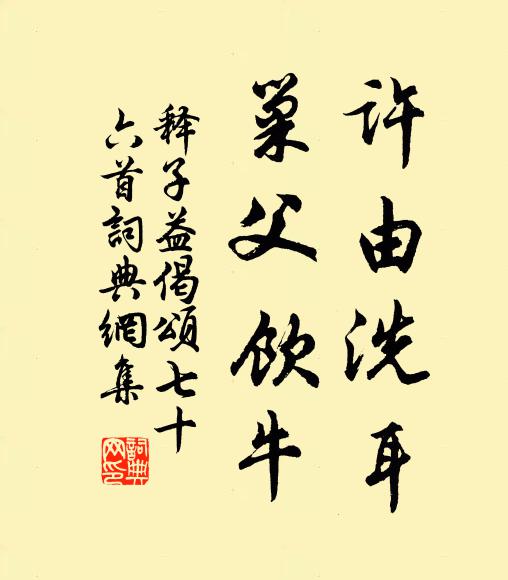 許由洗耳
巢父飲牛
釋子益偈頌七十
六首詞典網集
詞典网印